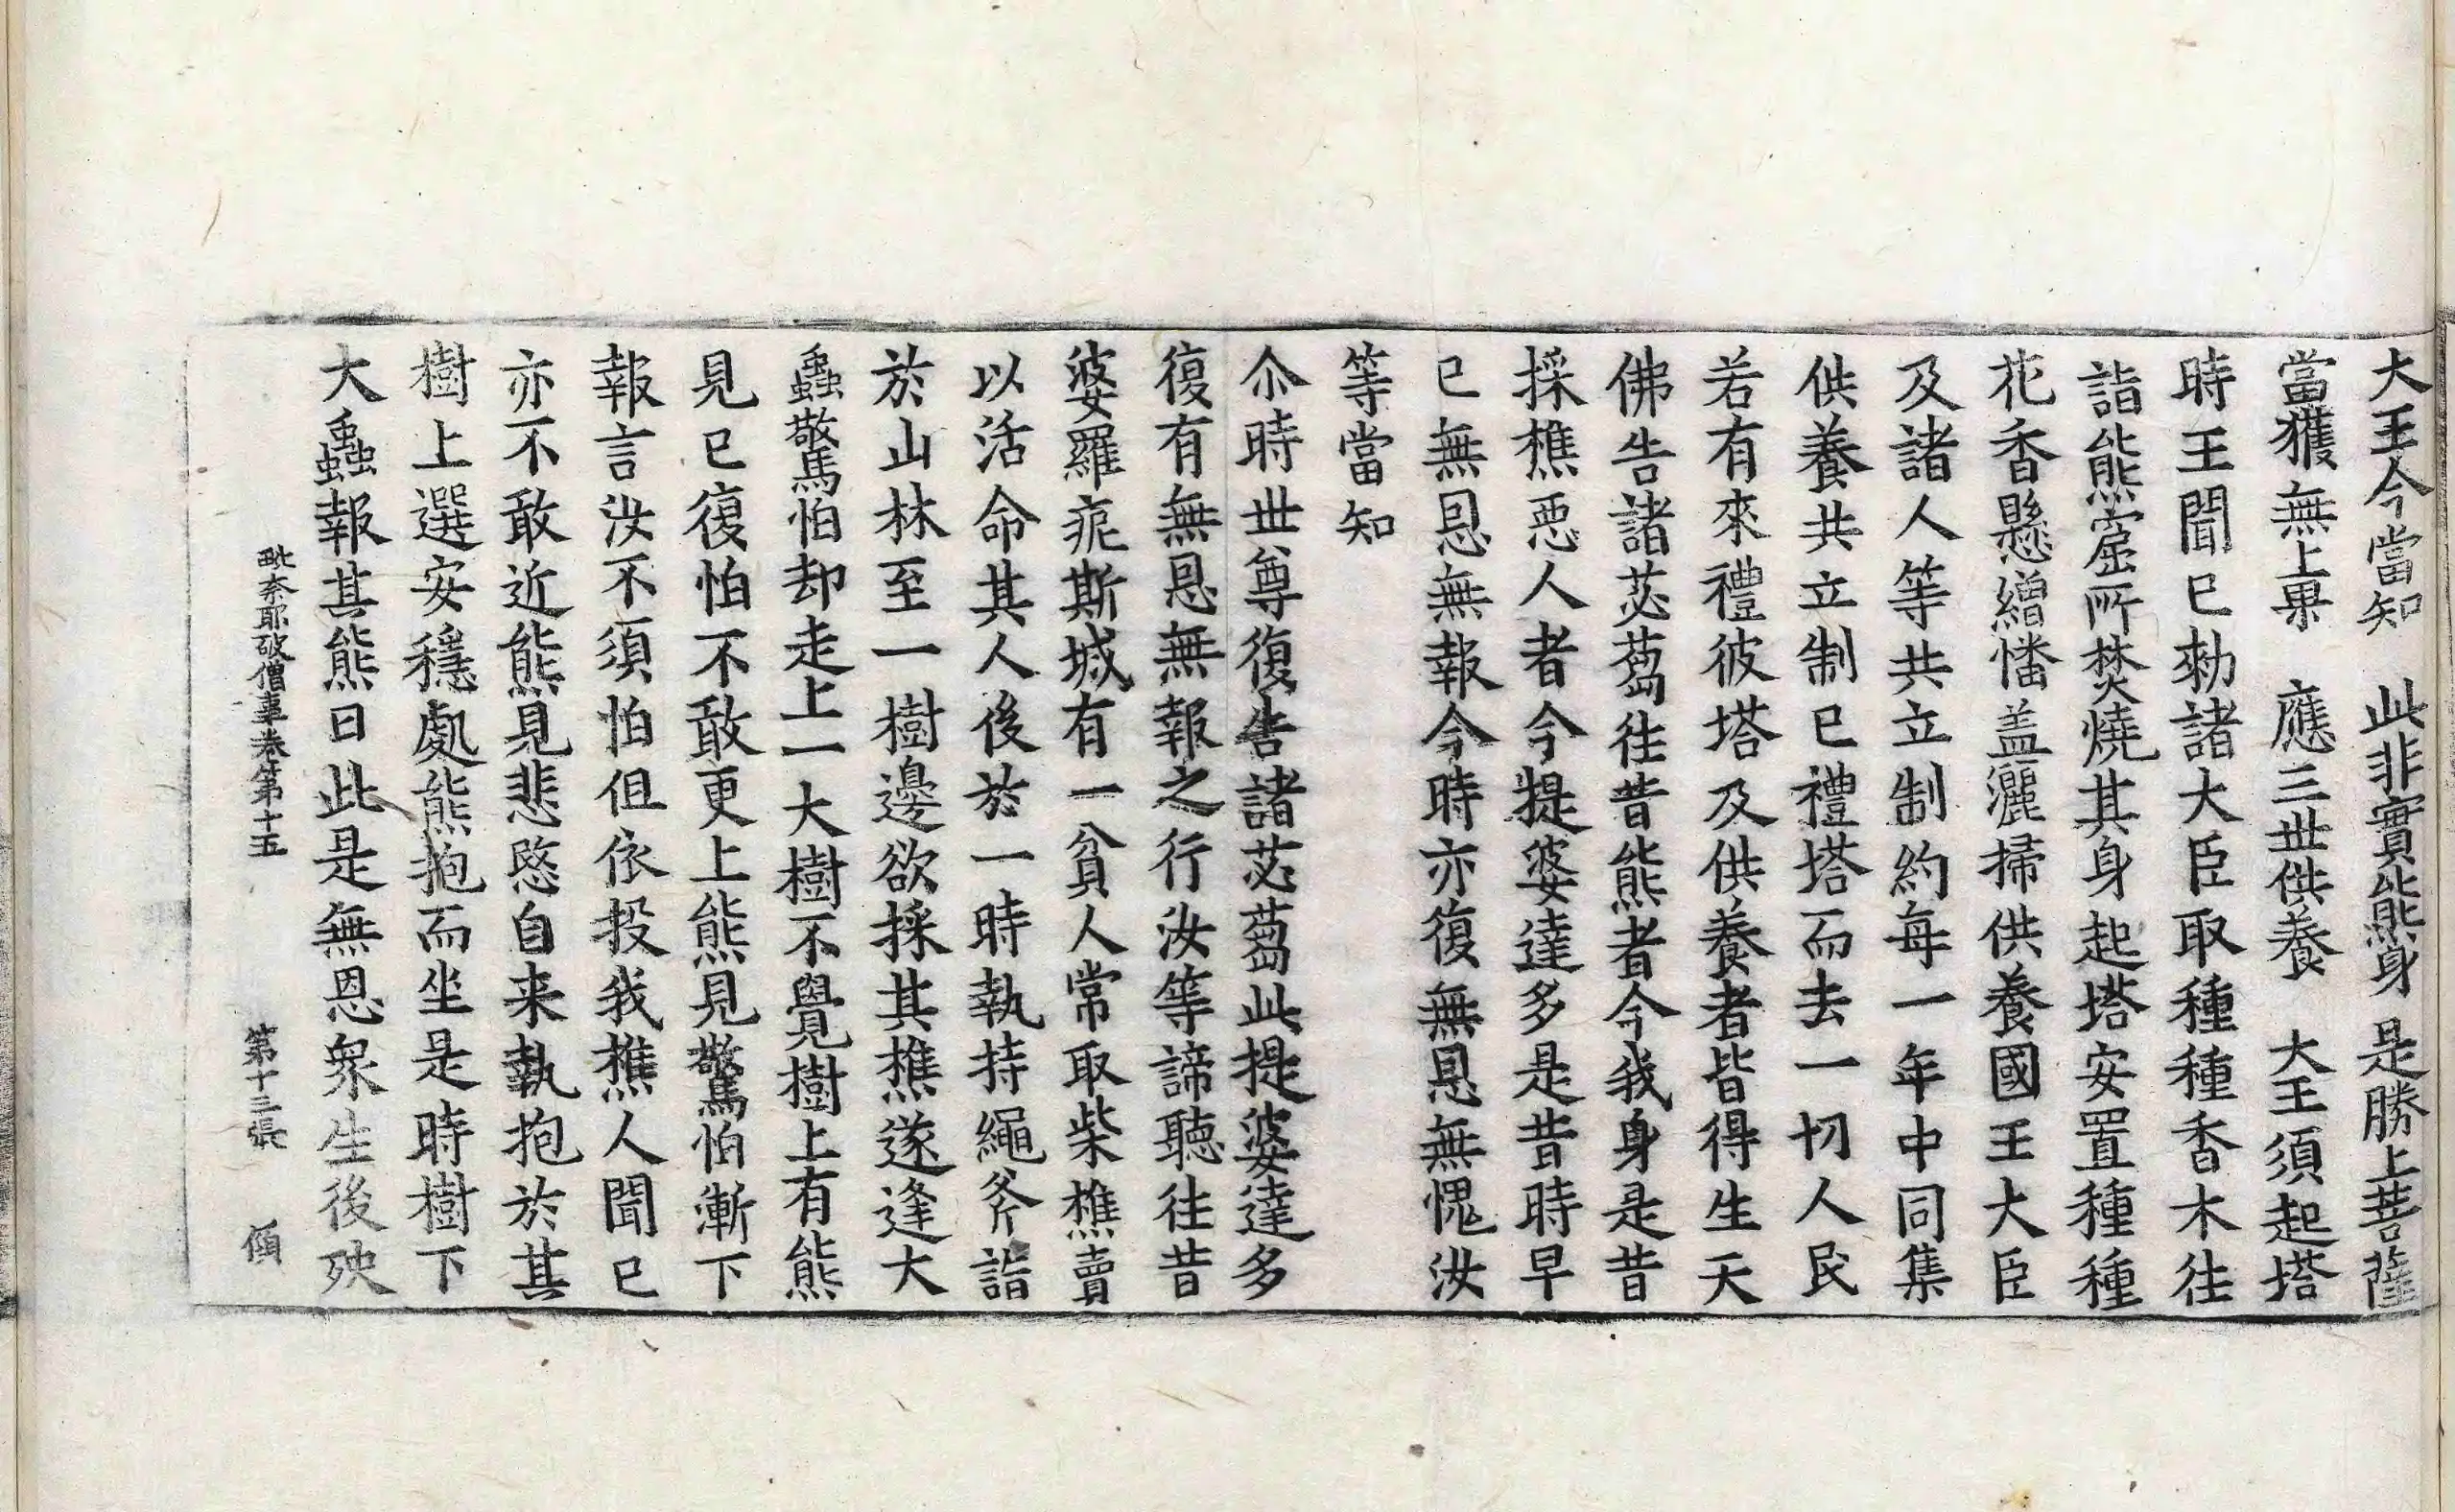 大王今當知　此非實熊身　是勝上菩薩
當獲無上果　應三世供養　大王須起塔
時王聞已勑諸大臣取種種香木往
詣熊窟所焚燒其身起塔安置種種
花香懸繒幡盖灑掃供養國王大臣
及諸人等共立制約每一年中同集
供養共立制已禮塔而去一切人民
若有來禮彼塔及供養者皆得生天
佛告諸苾蒭往昔熊者今我身是昔
採樵惡人者今提婆達多是昔時早
已無恩無報今時亦復無恩無愧汝
等當知
尒時世尊復告諸苾蒭此提婆達多
復有無恩無報之行汝等諦聽往昔
婆羅痆斯城有一貧人常取柴樵賣
以活命其人後於一時執持繩斧詣
於山林至一樹邊欲採其樵遂逢大
蟲驚怕却走上一大樹不覺樹上有熊
見已復怕不敢更上熊見驚怕漸下
報言汝不須怕但依投我樵人聞已
亦不敢近熊見悲愍自来執抱於其
樹上選安穩處熊抱而坐是時樹下
大蟲報其熊曰此是無恩衆生後殃
毗奈耶破僧事卷第十五　第十三張　傾